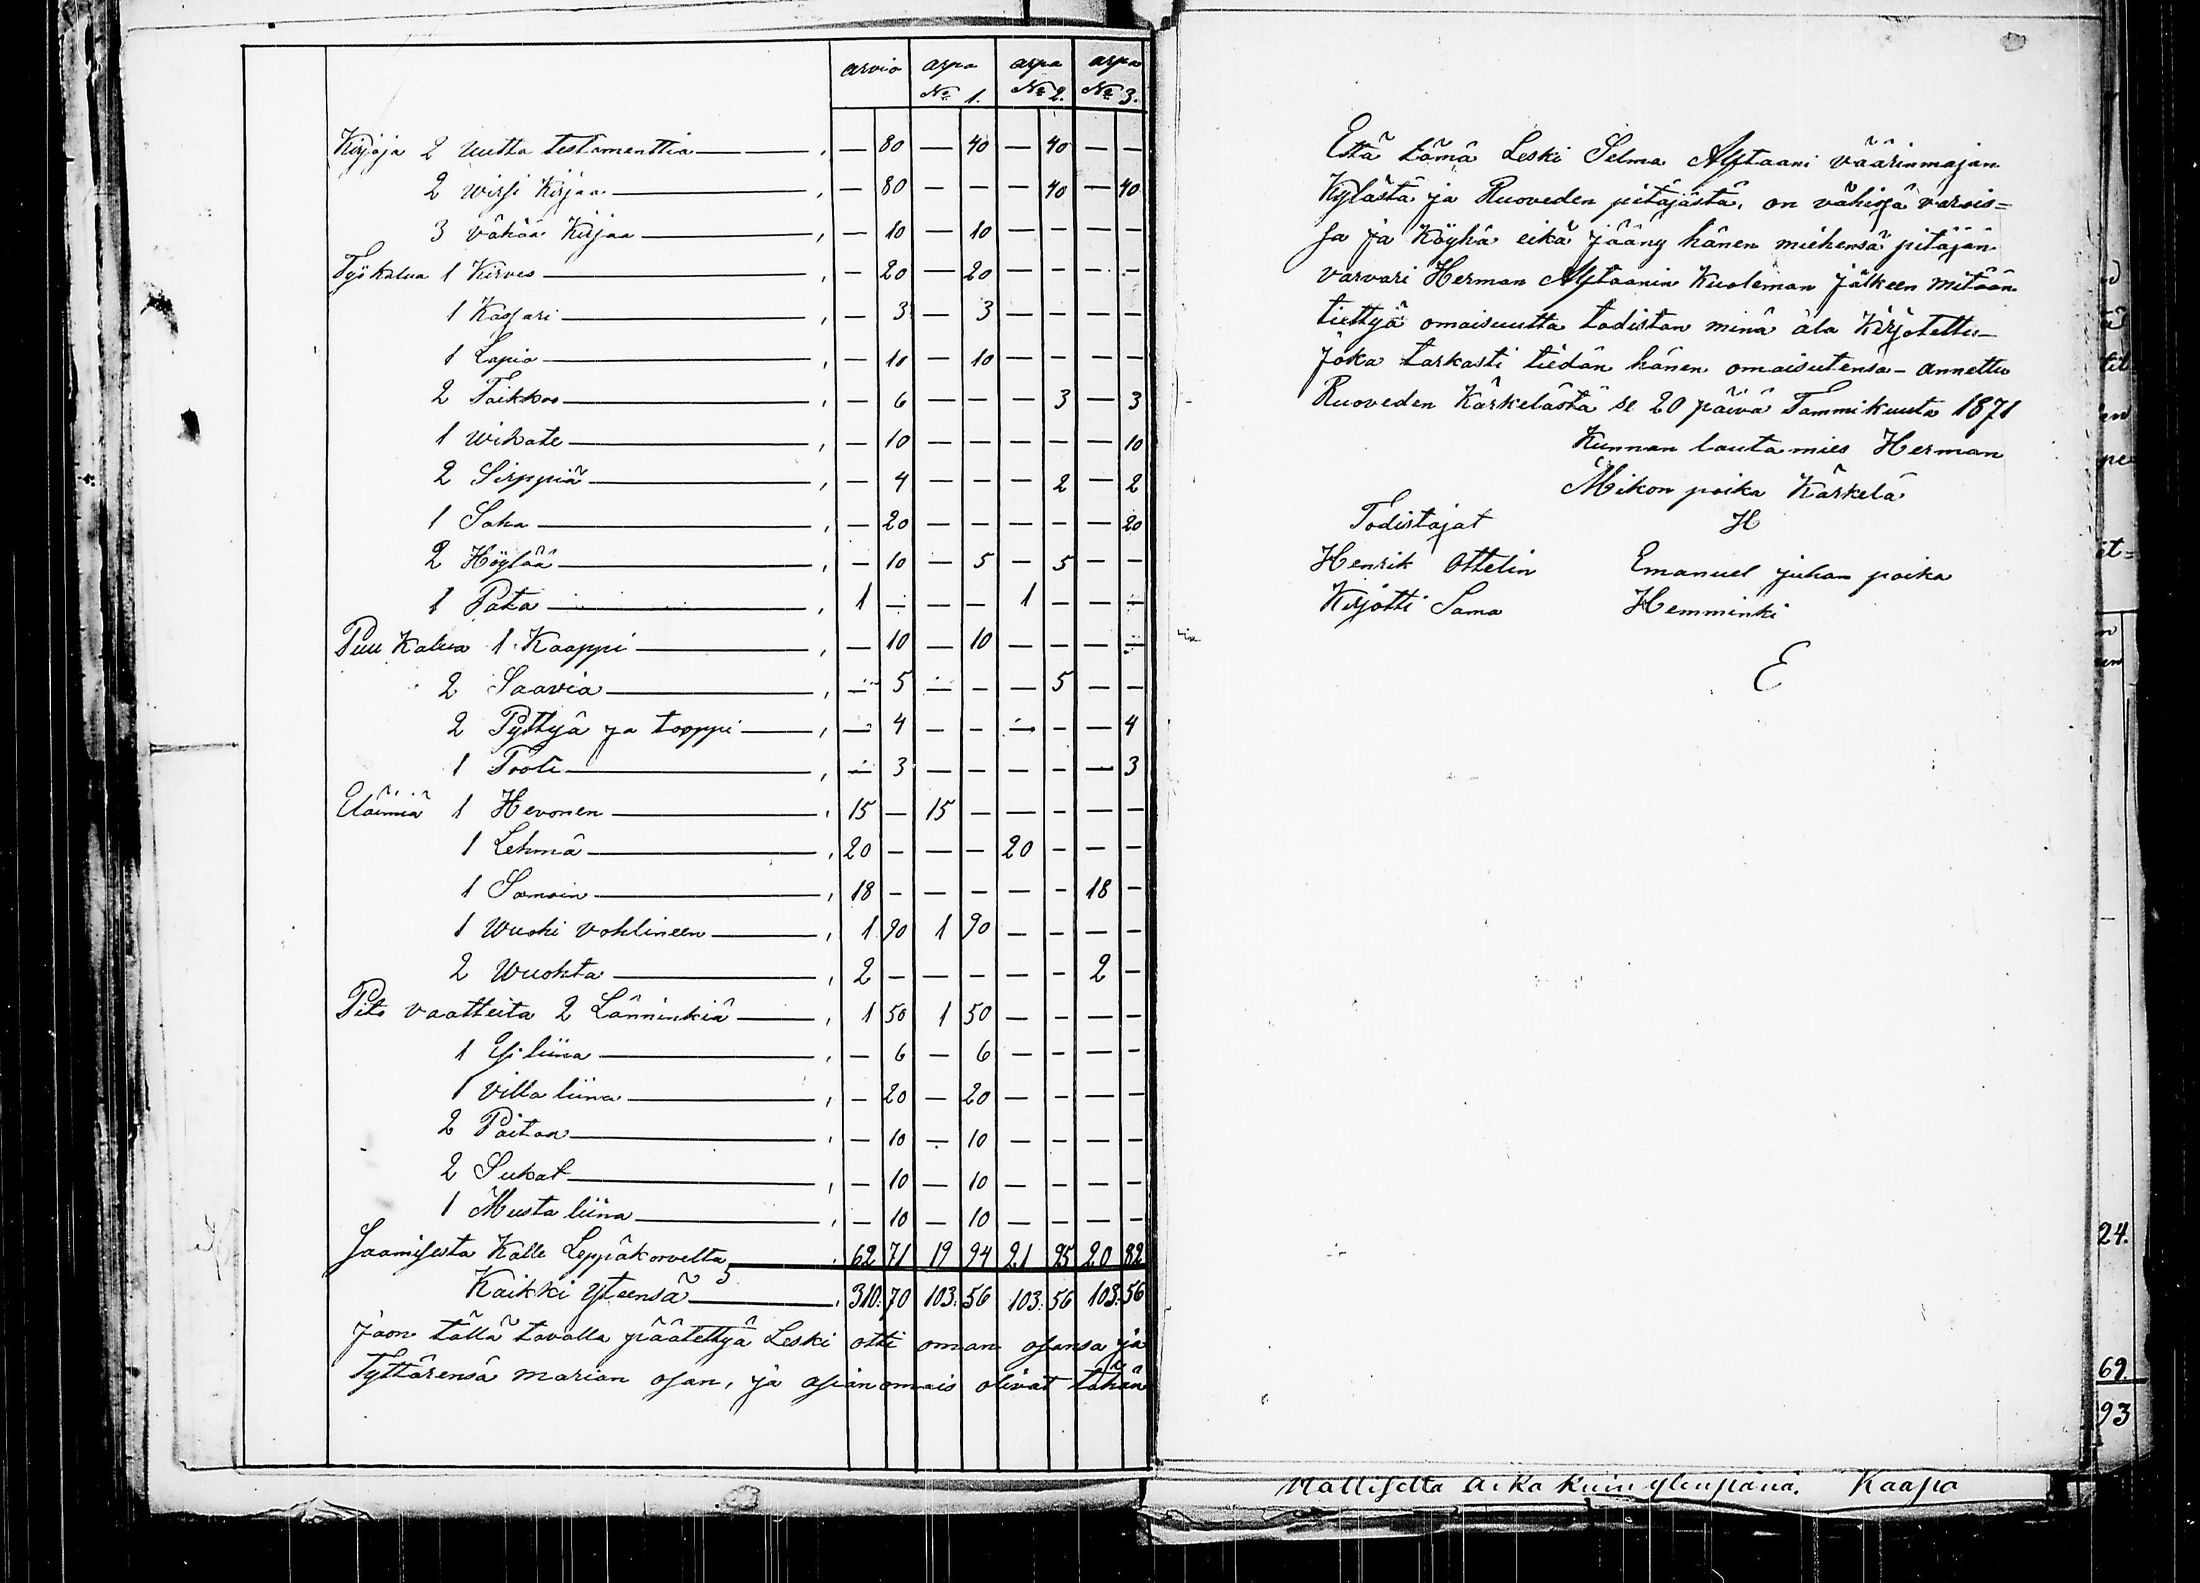 arvio arpa arpa arpa
No 1. No 2. No 3.
Kirjoja 2 Uutta testamenttia — 80 — 40 — 40 — —
2 Wirsi Kirjaa — 80 — — — 40 — 40
3 vähää Kirjaa — 10 — 10 — — — —
Työkalua 1 Kirves — 20 — 20 — — — —
1 Kassari — 3 — 3 — — — —
1 Lapio — 10 — 10 — — — —
2 Taikkoo — 6 — — — 3 — 3
1 Wikate — 10 — — — — — 10
2 Sirppiä — 4 — — — 2 — 2
1 Saha — 20 — — — — — 20
2 Höylää — 10 — 5 — 5 — —
1 Pata 1 — — — 1 — — —
Puu Kalua 1 Kaappi — 10 — 10 — — — —
2 Saavia — 5 — — — 5 — —
2 Pyttyä ja tooppi — 4 — — — — — 4
1 Tooli — 3 — — — — — 3
Eläimiä 1 Hevonen 15 — 15 — — — — —
1 Lehmä 20 — — — 20 — — —
1 Samoin 18 — — — — — 18 —
1 Wuohi vohlineen 1 90 1 90 — — — —
2 Wuohta 2 — — — — — 2 —
Pito vaatteita 2 Länninkiä 1 50 1 50 — — — —
1 Esi liina — 6 — 6 — — — —
1 Villa liina — 20 — 20 — — — —
2 Paitaa — 10 — 10 — — — —
2 Sukat — 10 — 10 — — — —
1 Musta liina — 10 — 10 — — — —
Saamisesta Kalle Leppäkorvelta 62 71 19 94 21 95 20 82
Kaikki Yteensä 310: 70 103: 56 103: 56 103: 56
Jaon tällä tavalla päätettyä Leski otti oman osansa ja
Tyttärensä marian osan, ja asianomais olivat tähän
Että tämä Leski Selma Alftaani väärinmajan
Kylästä ja Ruoveden pitäjästä, on vähissä varois=
sa ja Köyhä eikä jääny hänen miehensä pitäjän
varvari Herman Alftaanin Kuoleman jälkeen mitään
tiettyä omaisuutta todistan minä ala Kirjotettu
joka tarkasti tiedän hänen omaisutensa – annettu
Ruoveden Kärkelästä se 20 päivä Tammikuuta 1871
Kunnan lautamies Herman
Mikon poika Kärkelä
Todistajat H
Henrik Ottelin Emanuel juhan poika
Kirjotti Sama Hemminki
E
24.
69.
93
Mallisella aika kuin ylenpänä. Kaapo